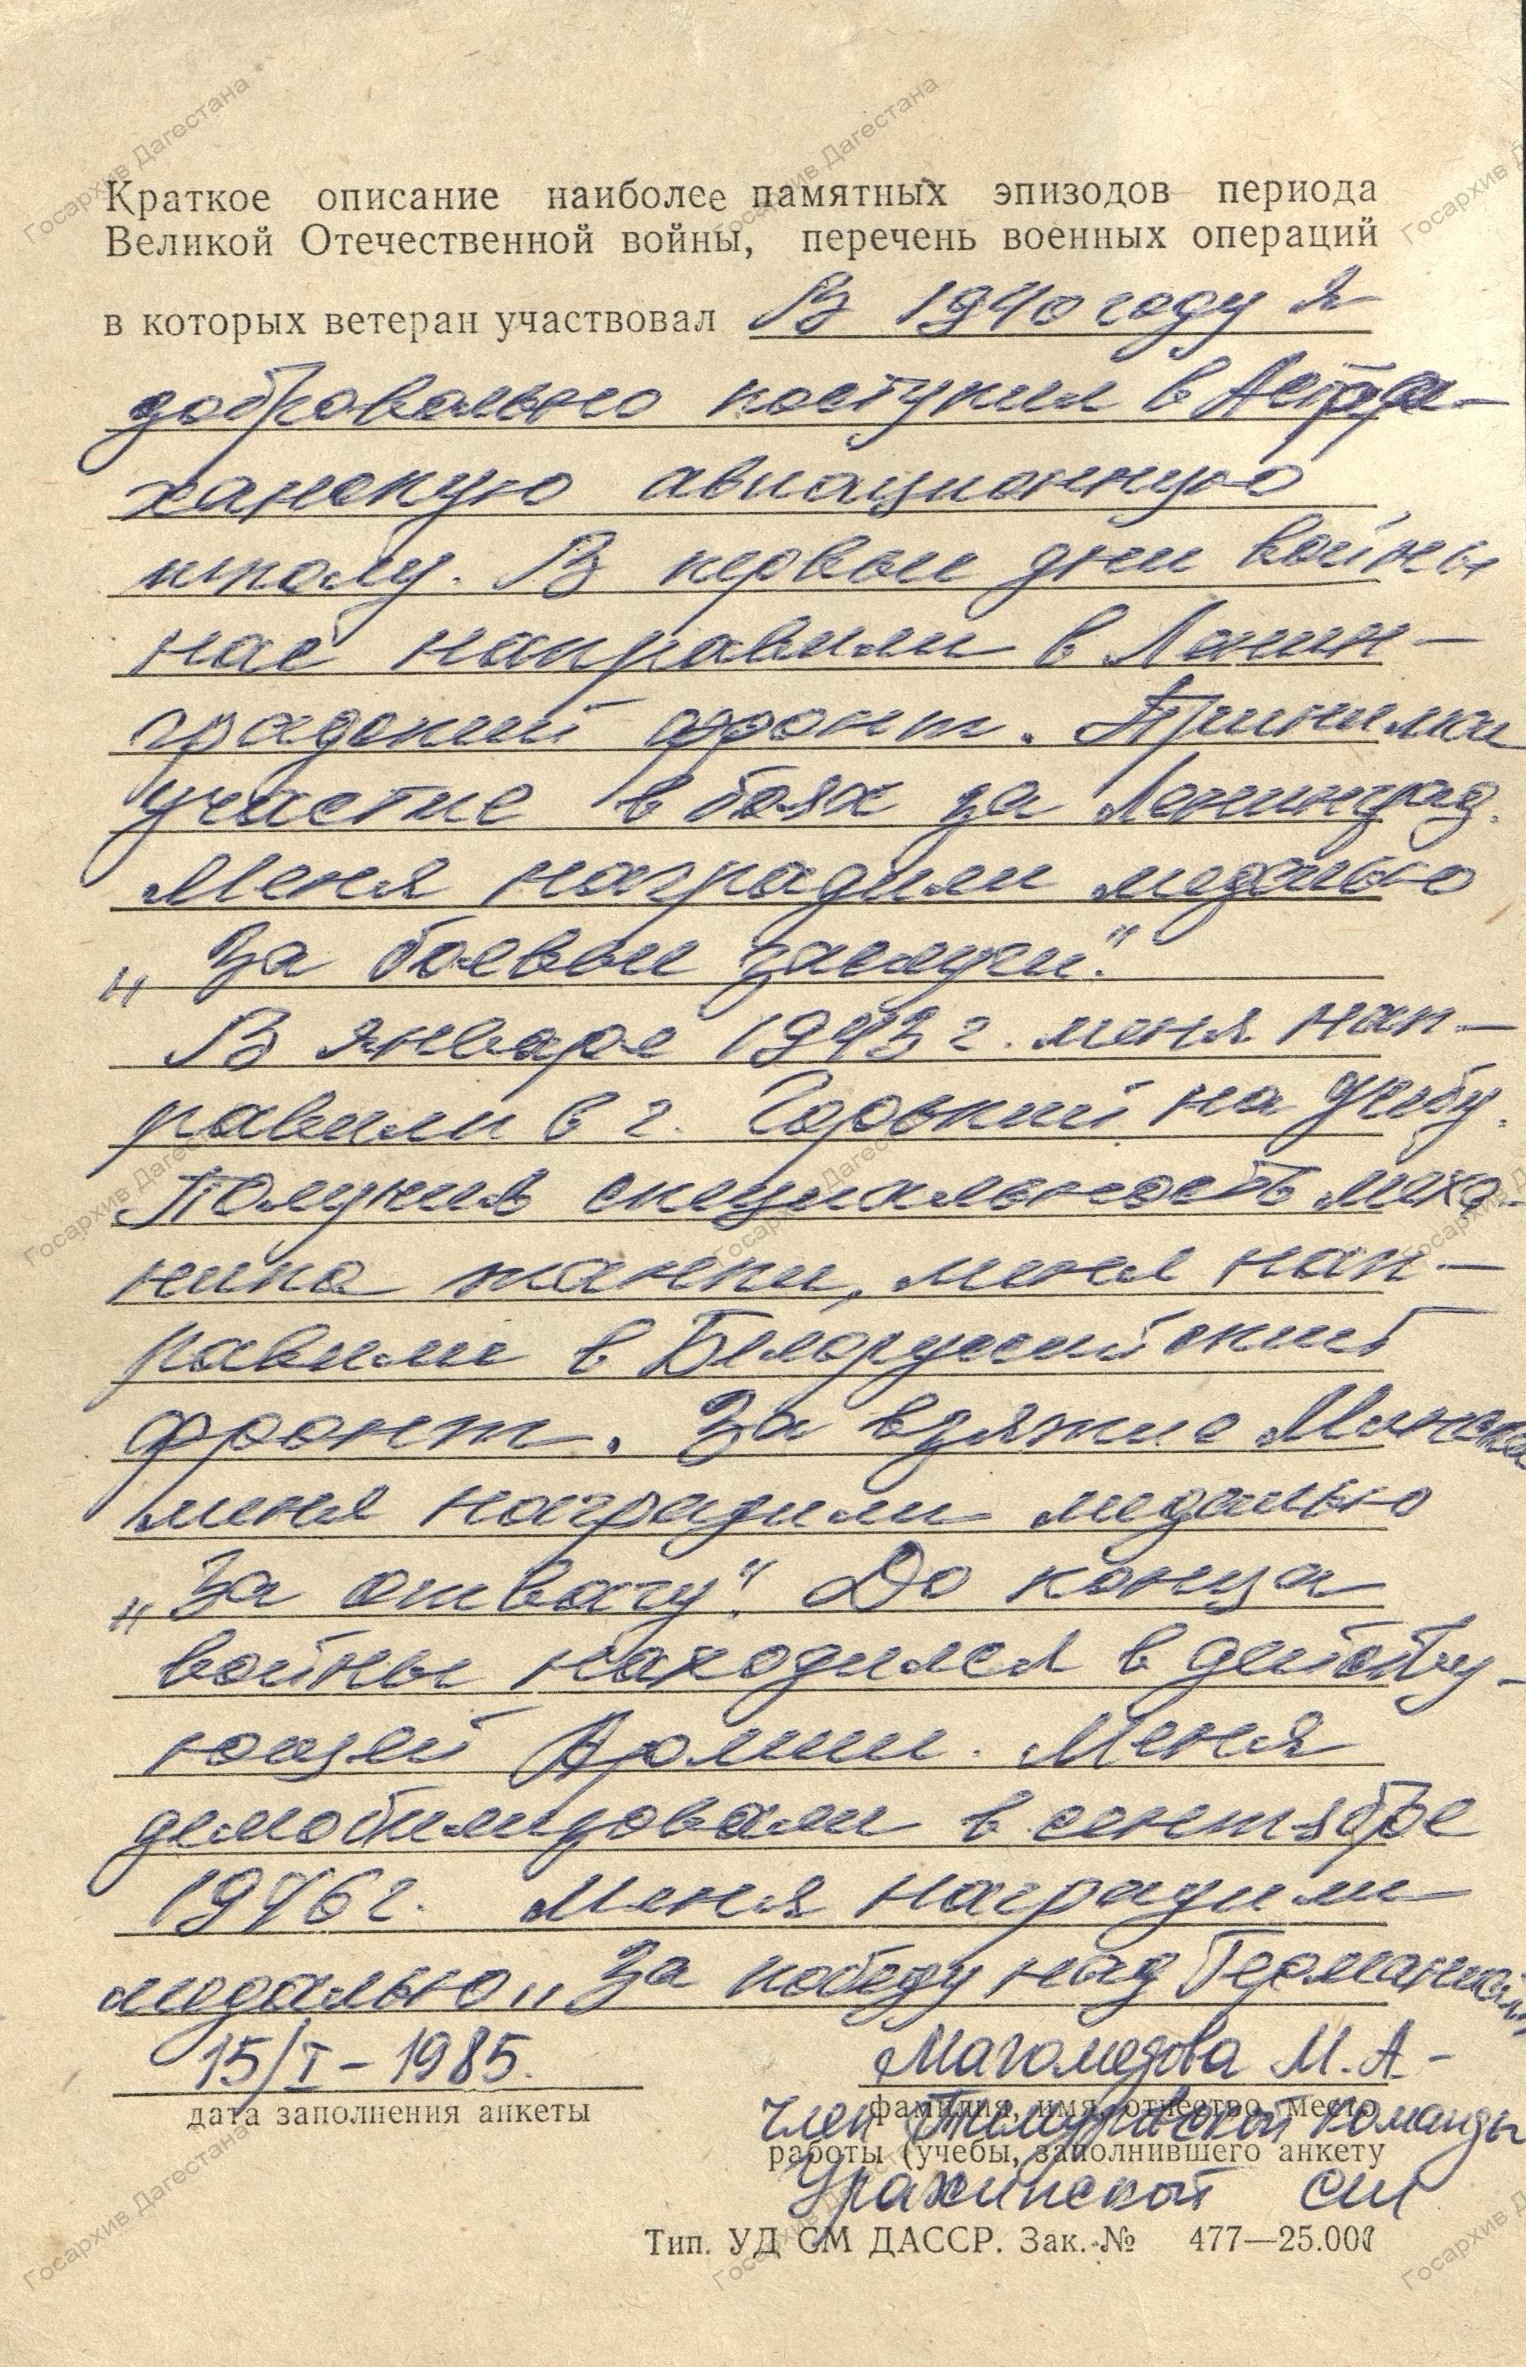 Краткое описание наиболее памятных эпизодов периода
Великой Отечественной войны, перечень военных операций
в которых ветеран участвовал В 1940 году я
добровольно поступил в Астра-
ханскую авиационную
школу. В первые дни войны
нас направили в Ленин-
градский фронт. Принимал
участие в боях за Ленинград.
Меня наградили медалью
„За боевые заслуги."
В январе 1943 г. меня нап-
равили в г. Горький на учебу.
Получив специальность меха-
ника танки, меня нап-
равили в Белорусийский
фронт. За взятие Минска
меня наградили медалью
„За отвагу". До конца
войны находился в действу-
ющей Армии. Меня
демобилизовали в сентябре
1946 г. Меня наградили
медалью „За победу над Германией"
15/I - 1985.
дата заполнения анкеты
Магомедова М. А. -
фамилия, имя, отчество, место
член Тимуровской команды
работы (учебы, заполнившего анкету
Урахинской сш
Тип. УД СМ ДАССР. Зак. № 477—25.000
Госархив Дагестана